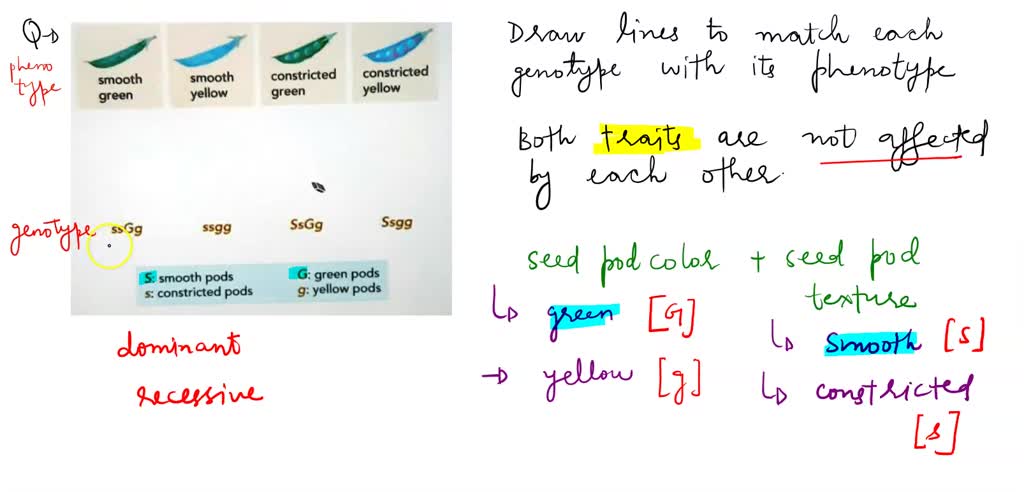 Q→
pheno
type
smooth
green
smooth
yellow
constricted
green
constricted
yellow
genotype ssGg ssgg SsGg Ssgg
S: smooth pods G: green pods
s: constricted pods g: yellow pods
dominant
recessive
Draw lines to match each
genotype with its phenotype
Both traits are not affected
by each other.
seed pod color + seed pod
texture
↳ green [G]
→ yellow [g]
↳ smooth [S]
↳ constricted
[s]